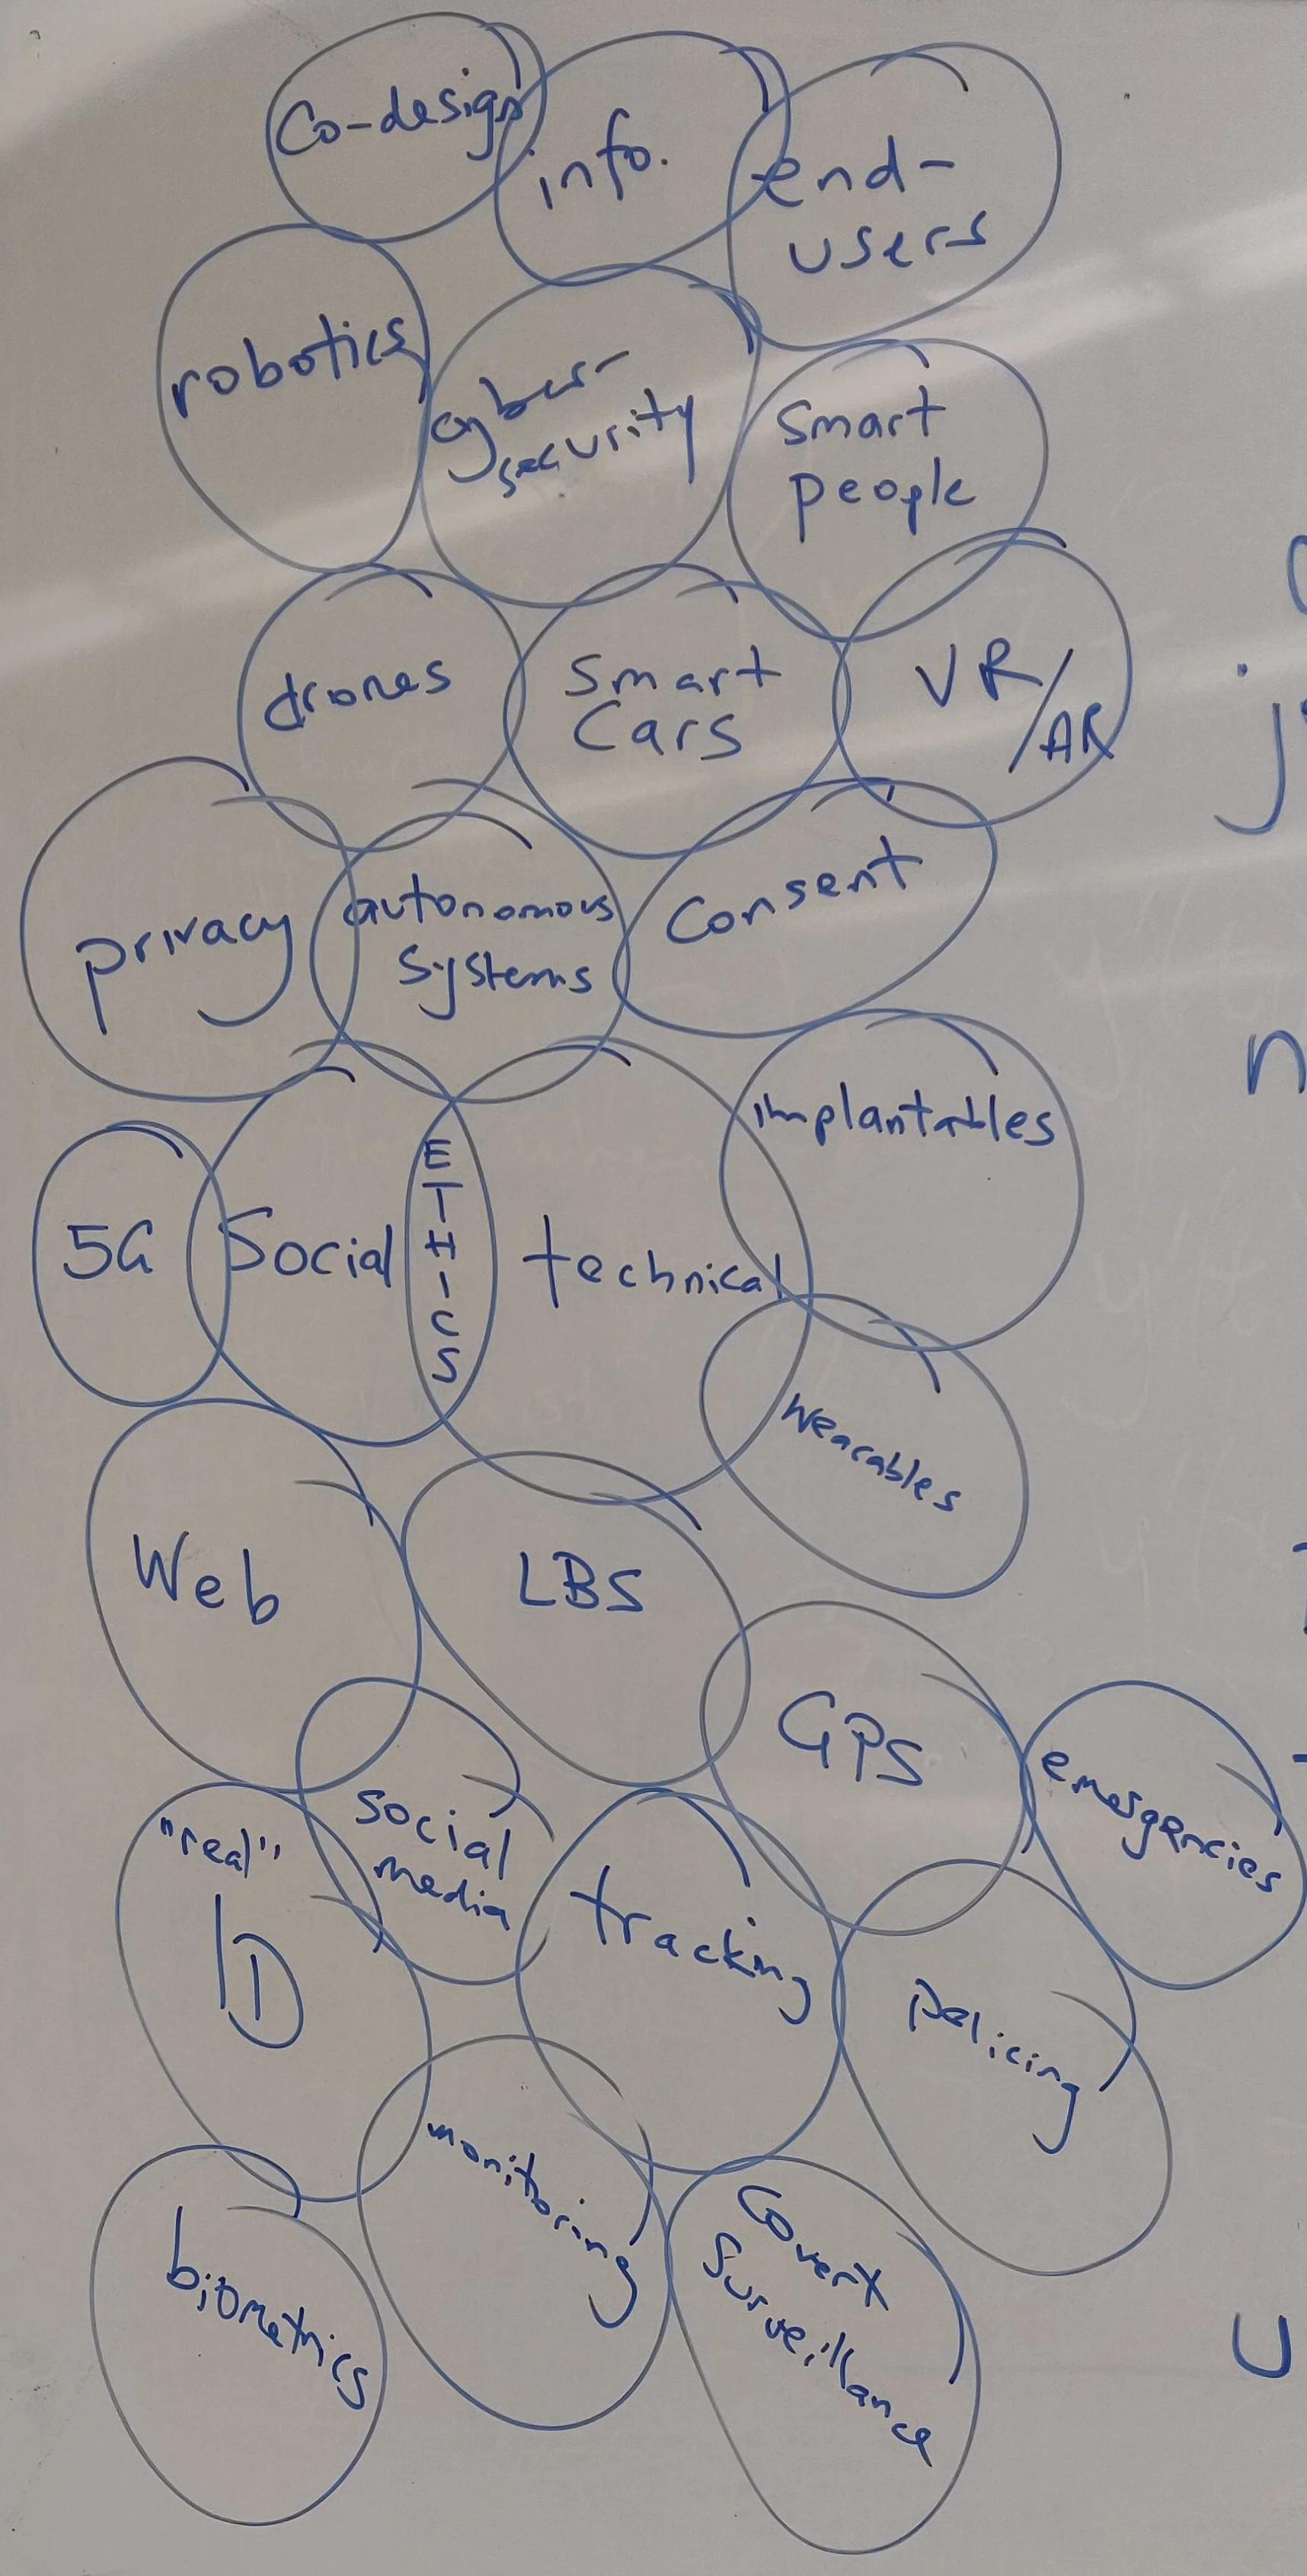 Co-design
info.
end-
users
robotics
cyber-
security
smart
people
drones
Smart
Cars
VR/
AR
privacy
autonomous
systems
Consent
implantables
5G
Social
ETHICS
technical
Wearables
Web
LBS
GPS
emergencies
"real"
ID
social
media
tracking
Policing
monitoring
biometrics
Covert
Surveillance
j
n
U